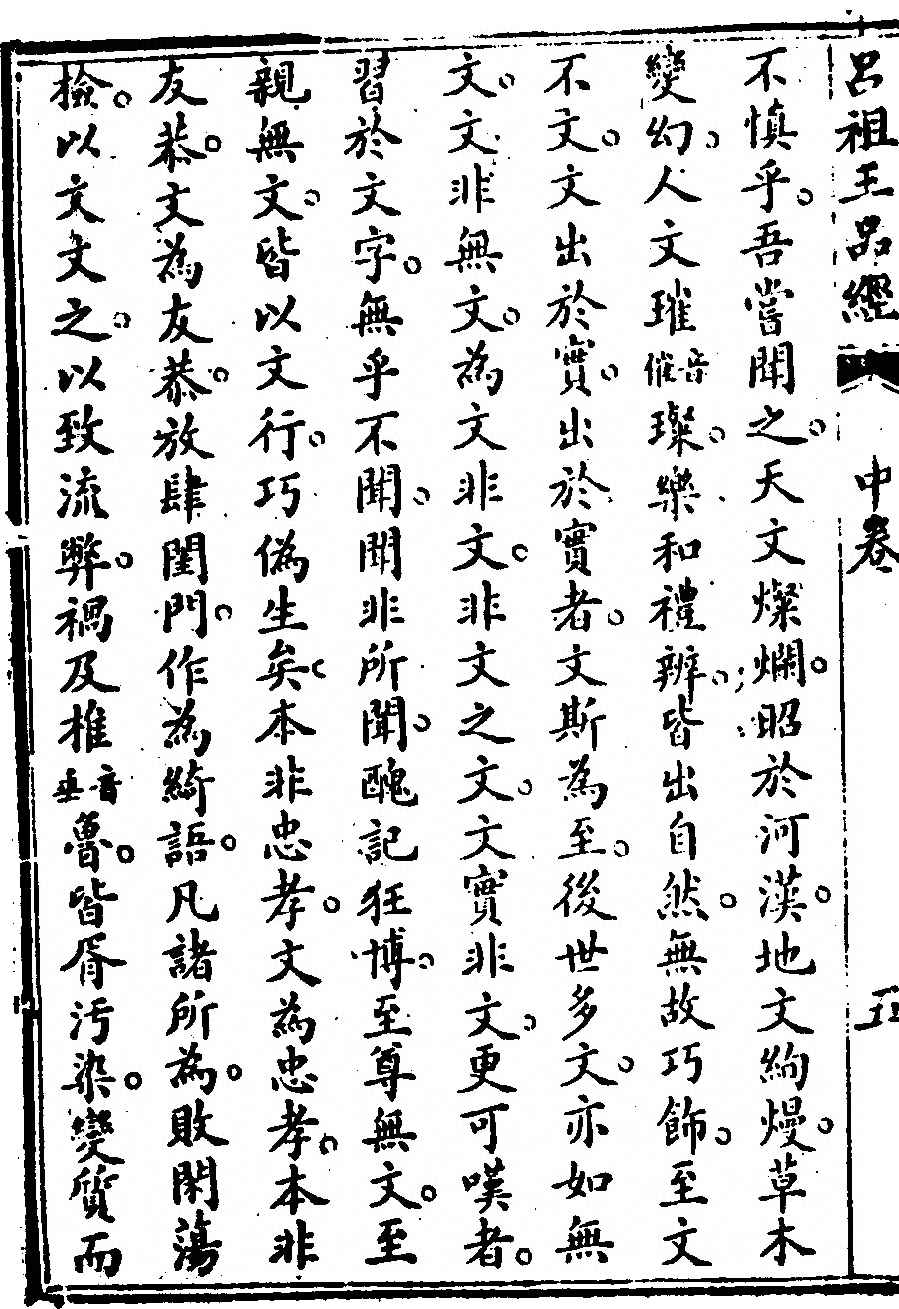 呂祖玉品經 中卷 五
不慎乎。吾嘗聞之。天文燦爛。昭於河漢。地文絢熳。草木
變幻。人文璀音催璨。樂和禮辨。皆出自然。無故巧飾。至文
不文。文出於實。出於實者。文斯為至。後世多文。亦如無
文。文非無文。為文非文。非文之文。文實非文。更可嘆者。
習於文字。無乎不聞。聞非所聞。醜記狂博。至尊無文。至
親無文。皆以文行。巧偽生矣。本非忠孝。文為忠孝。本非
友恭。文為友恭。放肆閨門。作為綺語。凡諸所為。敗閑蕩
檢。以文文之。以致流弊。禍及椎音垂魯。皆胥污染。變質而